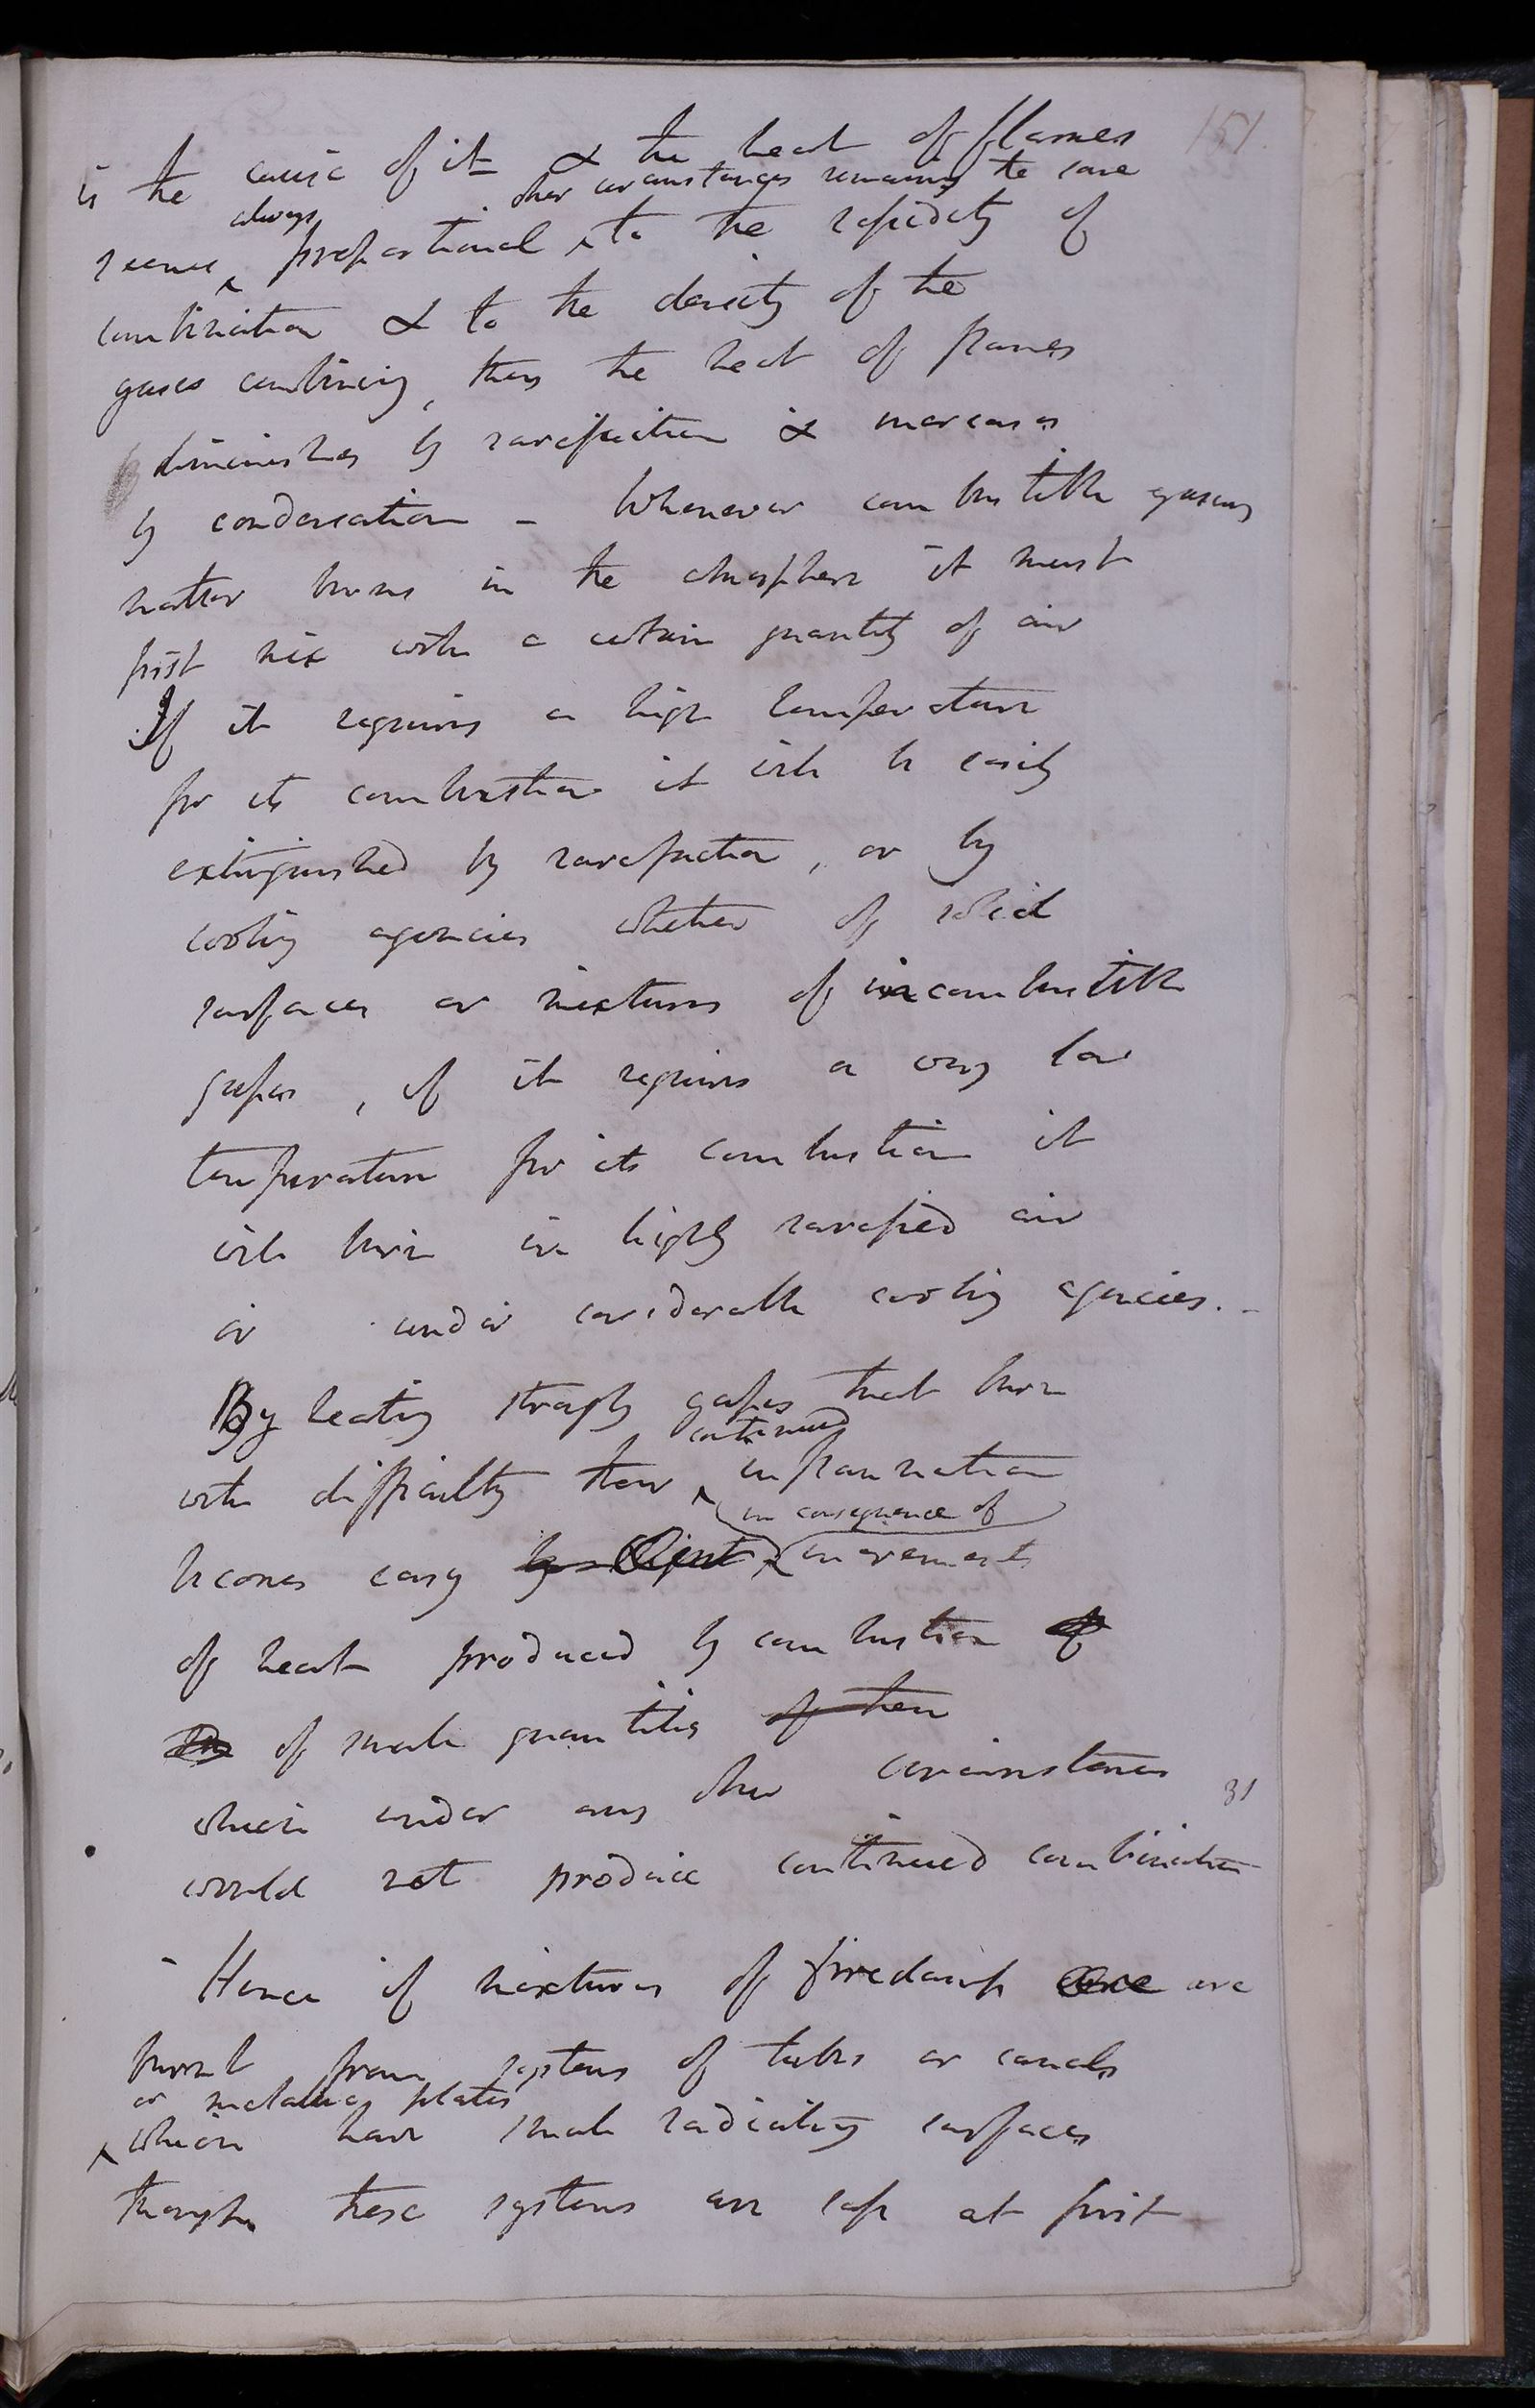 151.
is the cause of it & the heat of flames
other circumstances remaining the same
always
seems proportional to the rapidity of
combination & to the density of the
gases combining, thus the heat of flames
diminishes by rarefaction & increases
by condensation - Whenever combustible gaseous
matter burns in the atmosphere it must
first mix with a certain quantity of air
If it requires a high temperature
for its combustion it will be easily
extinguished by rarefaction, or by
cooling agencies whether of solid
surfaces or mixtures of incombustible
gases, if it requires a very low
temperature for its combustion it
will burn in highly rarefied air
or under considerable cooling agencies. -
By heating strongly gases that burn
continued
with difficulty their inflammation
in consequence of
becomes easy by slight increments
of heat produced by combustion of
of small quantities of them
which under any other circumstances
31
would not produce continued combination
- Hence if mixtures of firedamp are are
burnt from systems of tubes or canals
or metallic plates
which have small radiating surfaces
though these systems are safe at first